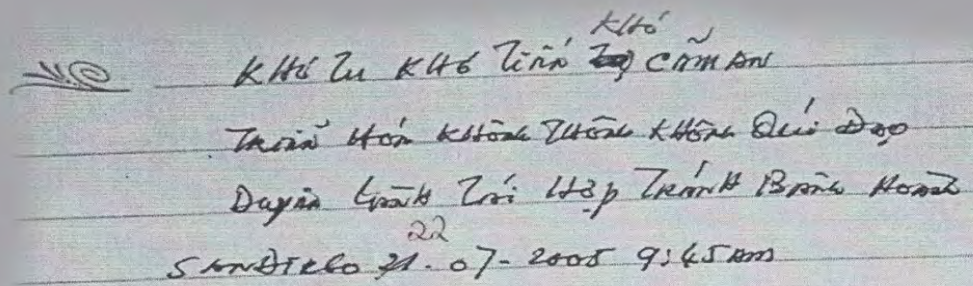 KHÓ TU KHÓ TIẾN KHÓ CẢM AN
HÓA KHÔNG THÔNG KHÔNG QUÍ ĐẠO
DUYÊN LÀNH TRÁI HỢP TRÁNH HOANG
SANDIEGO 22-07-2005 9:45 AM